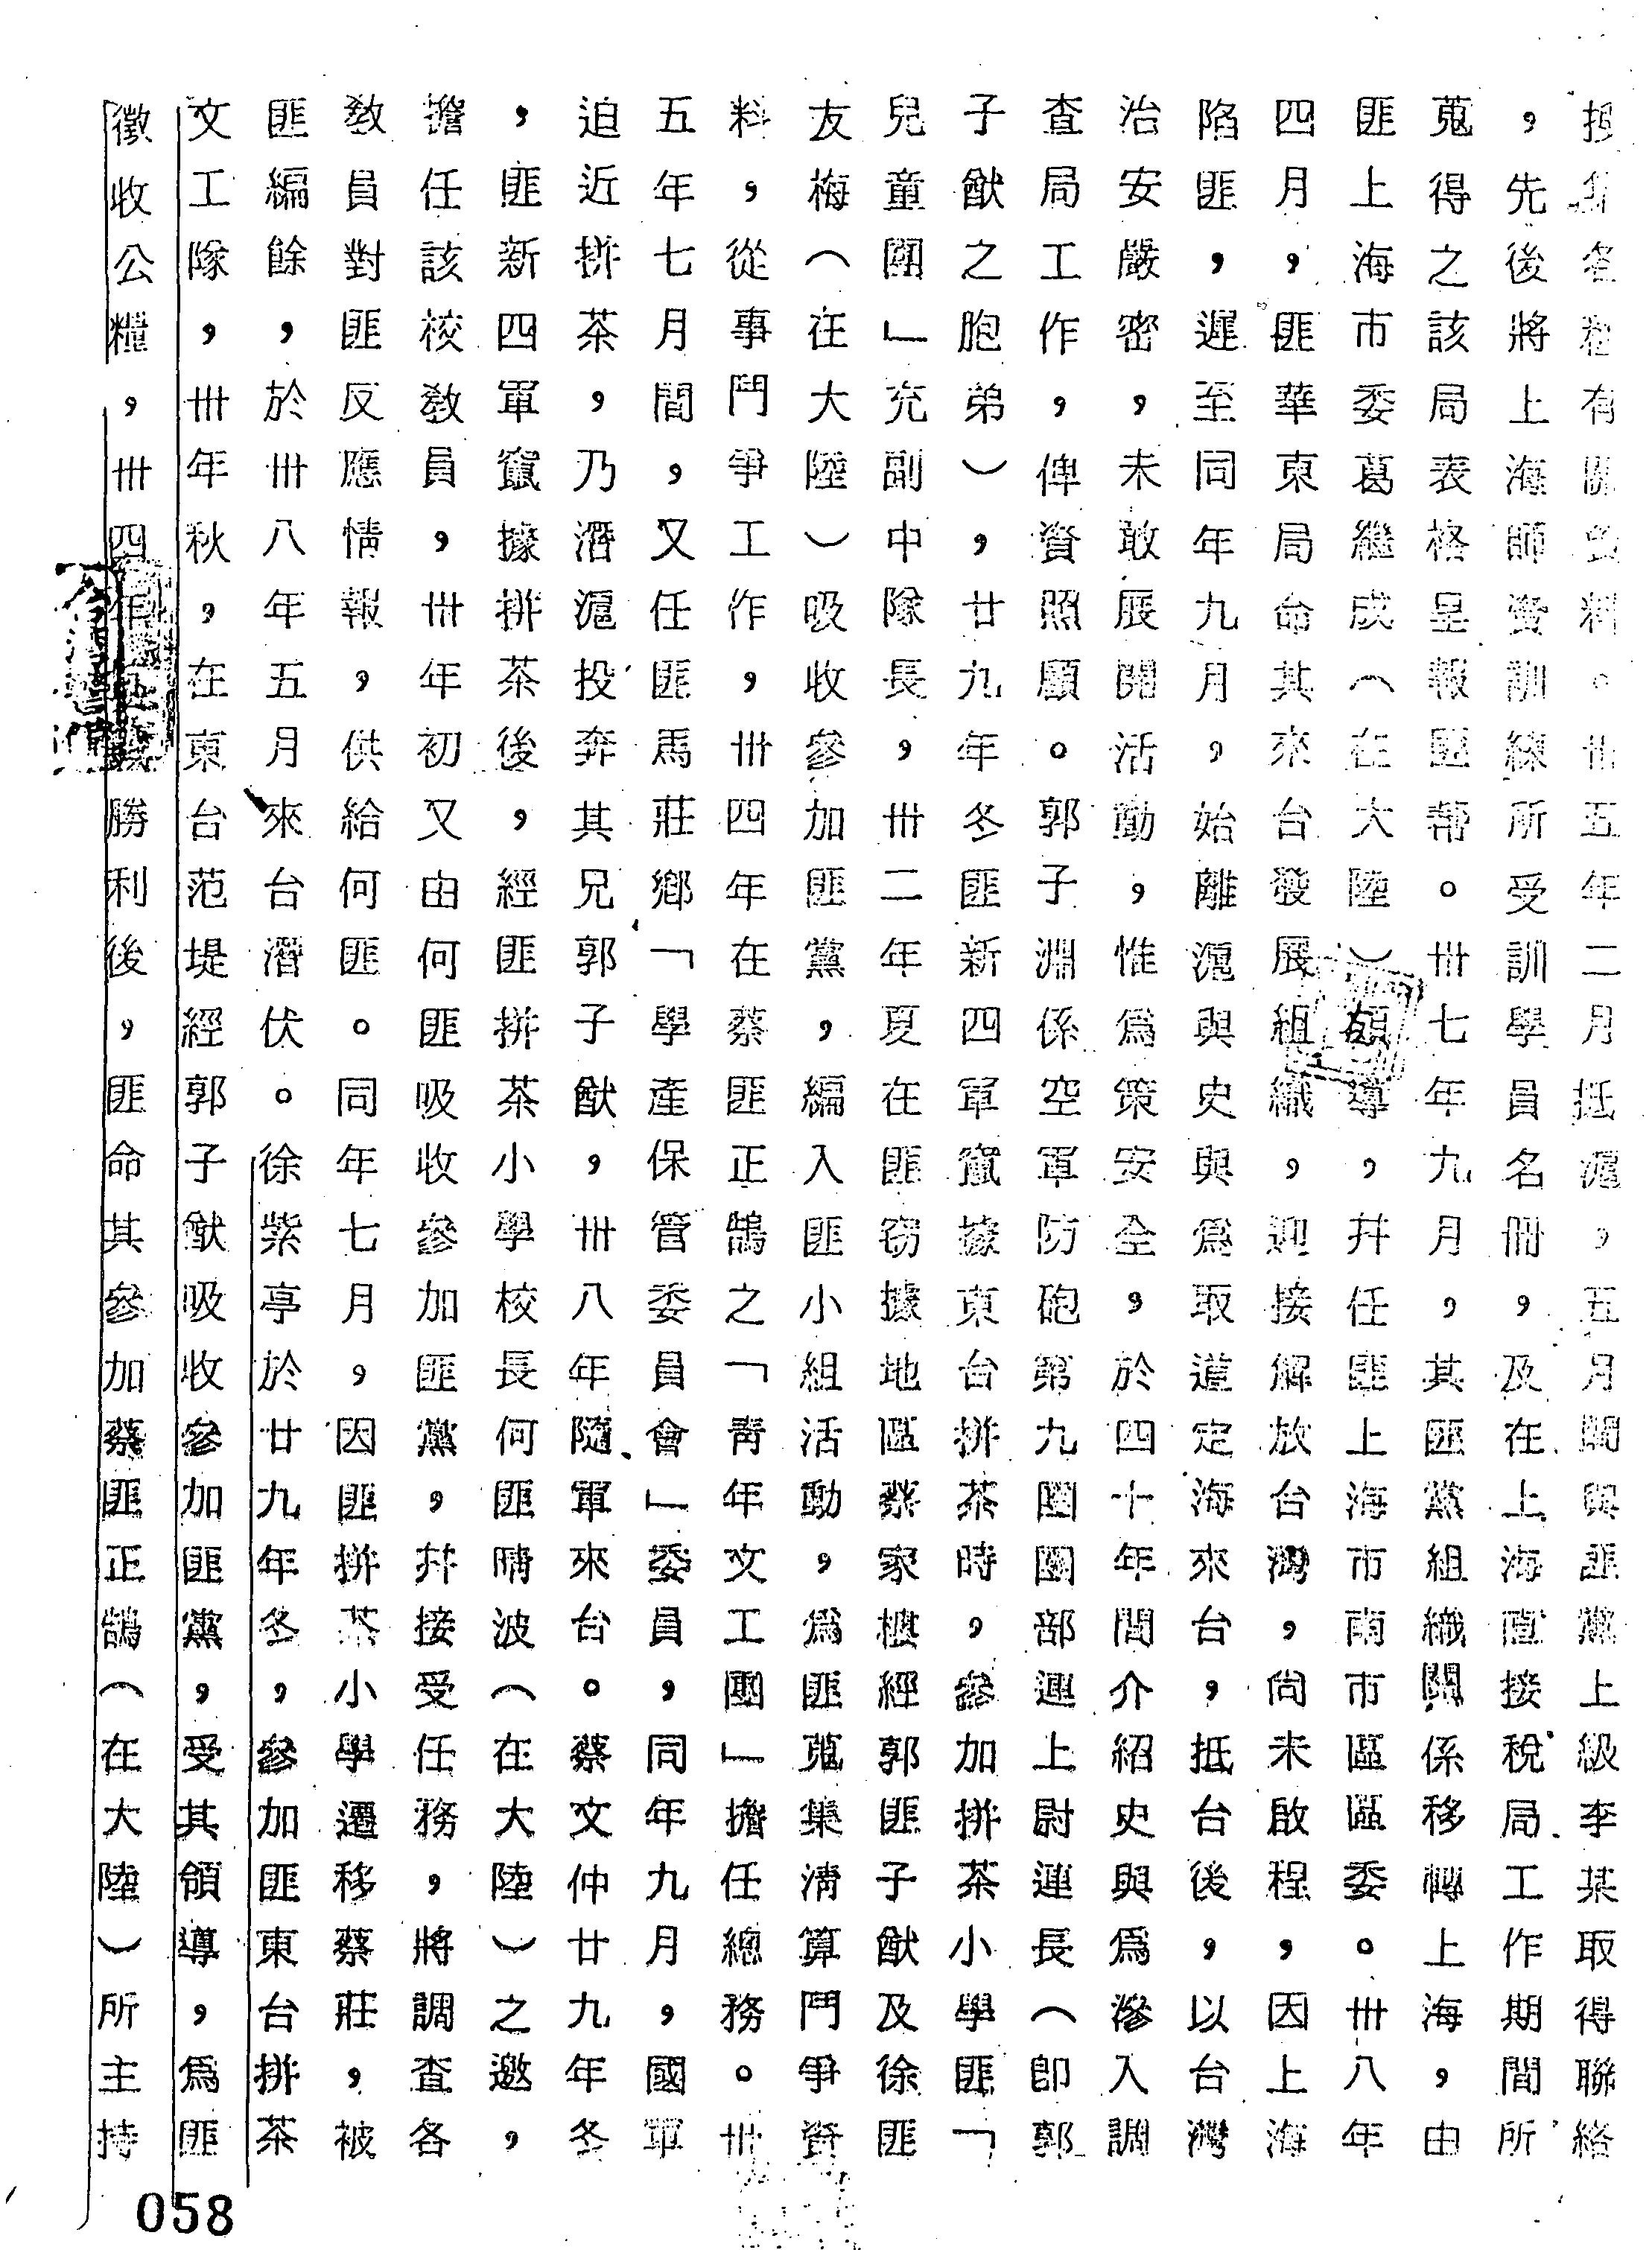 搜集各種有關資料。卅五年二月抵滬,五月間與匪黨上級李某取得聯絡
,先後將上海師資訓練所受訓學員名冊,及在上海直接稅局工作期間所
蒐得之該局表格呈報匪幫。卅七年九月,其匪黨組織關係移轉上海,由
匪上海市委葛繼成(在大陸)領導,幷任匪上海市南市區區委。卅八年
四月,匪華東局命其來台發展組織,迎接解放台灣,尙未啟程,因上海
陷匪,遲至同年九月,始離滬與史與爲取道定海來台,抵台後,以台灣
治安嚴密,未敢展開活動,惟爲策安全,於四十年間介紹史與爲滲入調
查局工作,俾資照顧。郭子淵係空軍防砲第九團團部連上尉連長(卽郭
子猷之胞弟),廿九年冬匪新四軍竄據東台拼茶時,參加拼茶小學匪「
兒童團」充副中隊長,卅二年夏在匪窃據地區蔡家樓經郭匪子猷及徐匪
友梅(在大陸)吸收參加匪黨,編入匪小組活動,爲匪蒐集清算鬥爭資
料,從事鬥爭工作,卅四年在蔡匪正鵠之「靑年文工團」擔任總務。卅
五年七月間,又任匪馬莊鄉「學產保管委員會」委員,同年九月,國軍
迫近拼茶,乃潛滬投奔其兄郭子猷,卅八年隨軍來台。蔡文仲廿九年冬
,匪新四軍竄據拼茶後,經匪拼茶小學校長何匪晴波(在大陸)之邀,
擔任該校敎員,卅年初又由何匪吸收參加匪黨,幷接受任務,將調查各
敎員對匪反應情報,供給何匪。同年七月,因匪拼茶小學遷移蔡莊,被
匪編餘,於卅八年五月來台潛伏。徐紫亭於廿九年冬,參加匪東台拼茶
文工隊,卅年秋,在東台范堤經郭子猷吸收參加匪黨,受其領導,爲匪
徵收公糧,卅四年勝利後,匪命其參加蔡匪正鵠(在大陸)所主持
058